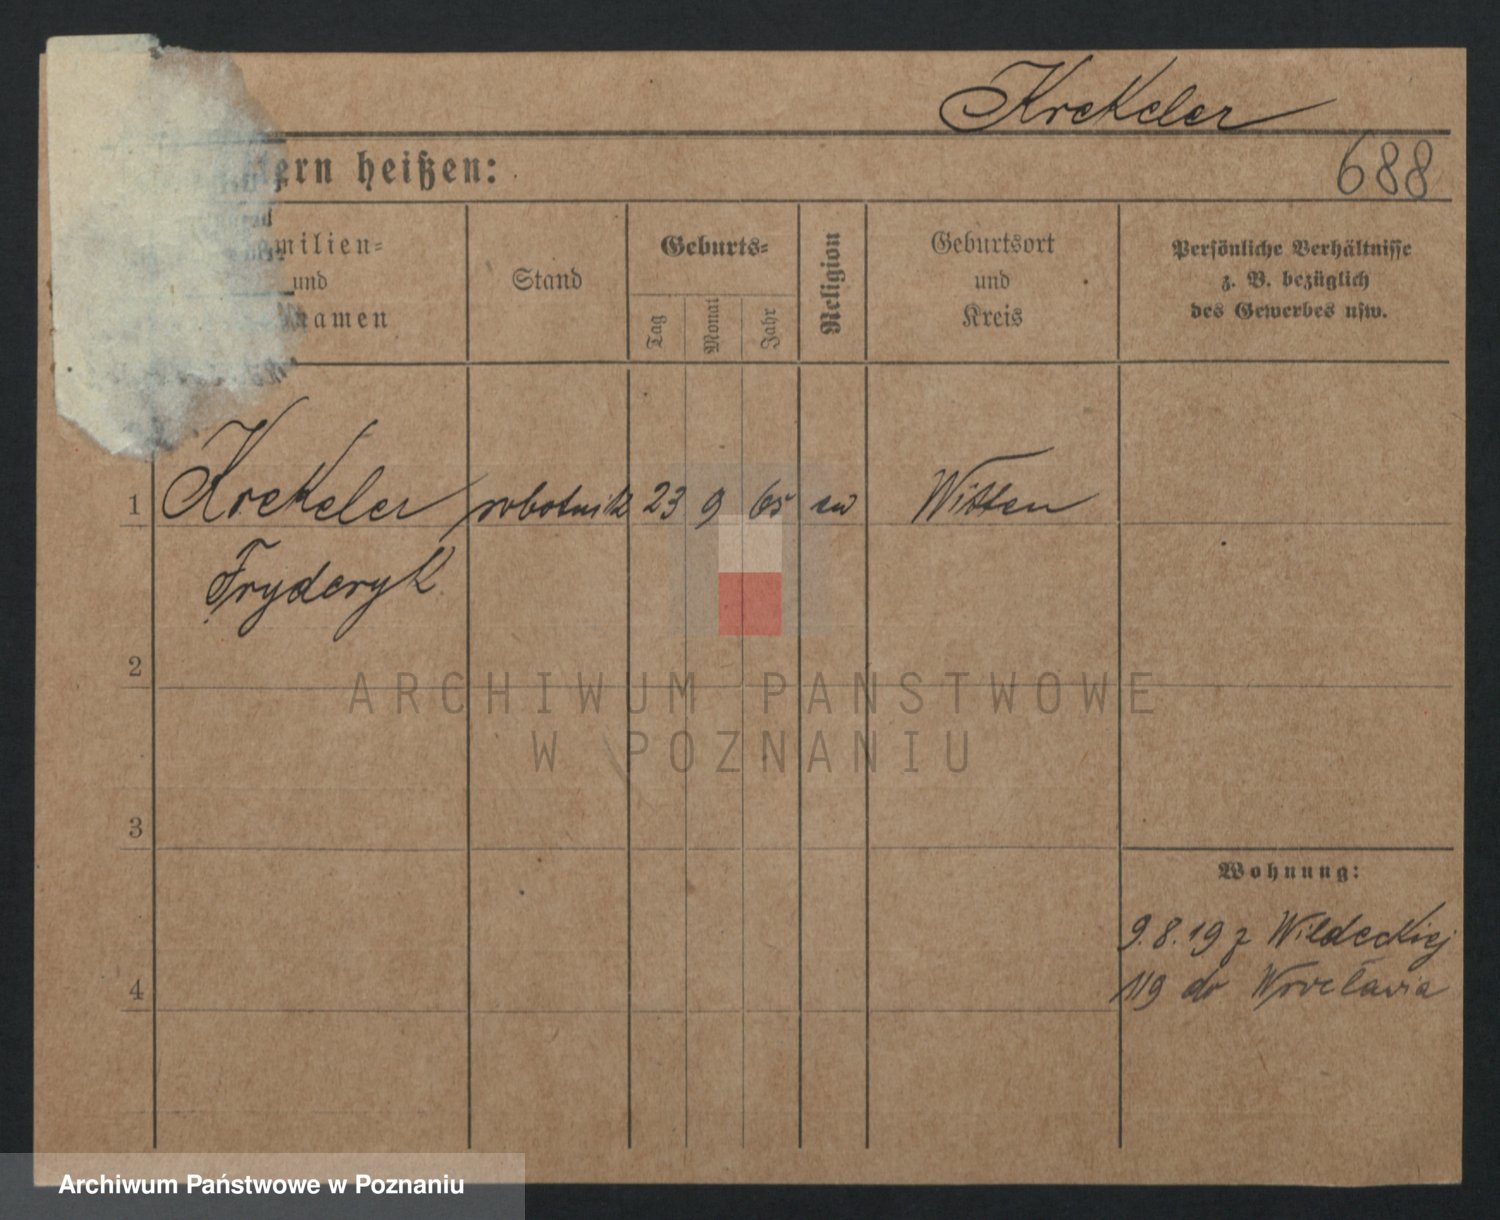 Krekeler
ern heißen:
688
amilien=
und
namen
Stand
Geburts=
Tag
Monat
Jahr
Religion
Geburtsort
und
Kreis
Persönliche Verhältnisse
z. B. bezüglich
des Gewerbes usw.
1 Krekeler robotnik 23 9 65 ew Witten
Fryderyk
2
ARCHIWUM PAŃSTWOWE
W POZNANIU
3
Wohnung:
9.8.19 z Wildeckiej
4
119 do Wrocławia
Archiwum Państwowe w Poznaniu